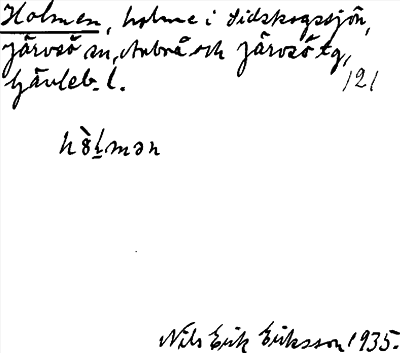 Holmen, holme i Sidskogssjön,
Järvsö sn, Arbrå och Järvsö tg,
Gävleb. l. 121
hòlmən
Nils Erik Eriksson 1935.